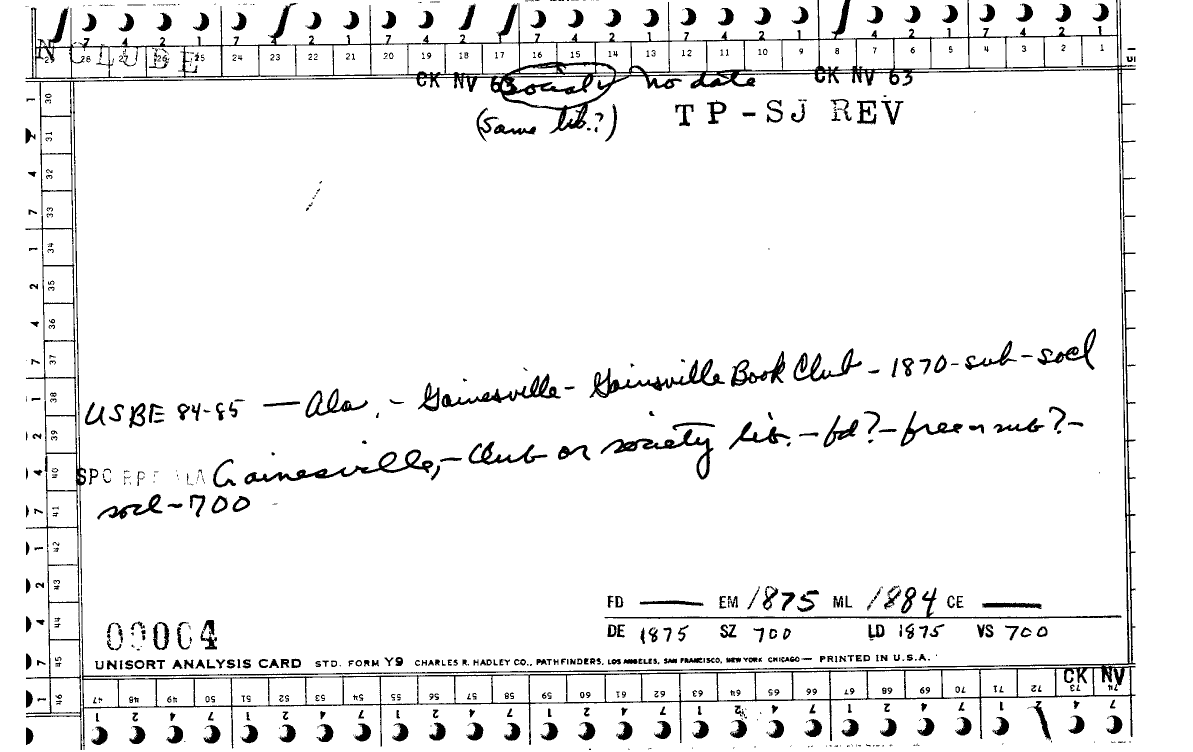 7 4 2 1 7 4 2 1 7 4 2 1 7 4 2 1 7 4 2 1 7 4 2 1 7 4 2 1
29 28 27 26 25 24 23 22 21 20 19 18 17 16 15 14 13 12 11 10 9 8 7 6 5 4 3 2 1
N CLUBE
CK NV 63 society no date CK NV 63
(Same lib.?) TP-SJ REV
1 30
2 31
4 32
7 33
1 34
2 35
4 36
7 37
1 38
2 39
4 40
7 41
1 42
2 43
4 44
7 45
1 46
USBE 84-85 — Ala. - Gainesville - Gainsville Book Club - 1870 - sub - socl
SPC RPT ALA Gainesville, - Club or society lib. - fd? - free or sub? -
socl - 700
FD — EM 1875 ML 1884 CE —
00004 DE 1875 SZ 700 LD 1875 VS 700
UNISORT ANALYSIS CARD STD. FORM Y9 CHARLES R. HADLEY CO., PATHFINDERS, LOS ANGELES, SAN FRANCISCO, NEW YORK CHICAGO — PRINTED IN U.S.A.
CK NV
47 48 49 50 51 52 53 54 55 56 57 58 59 60 61 62 63 64 65 66 67 68 69 70 71 72 73 74
1 2 4 7 1 2 4 7 1 2 4 7 1 2 4 7 1 2 4 7 1 2 4 7 1 2 4 7